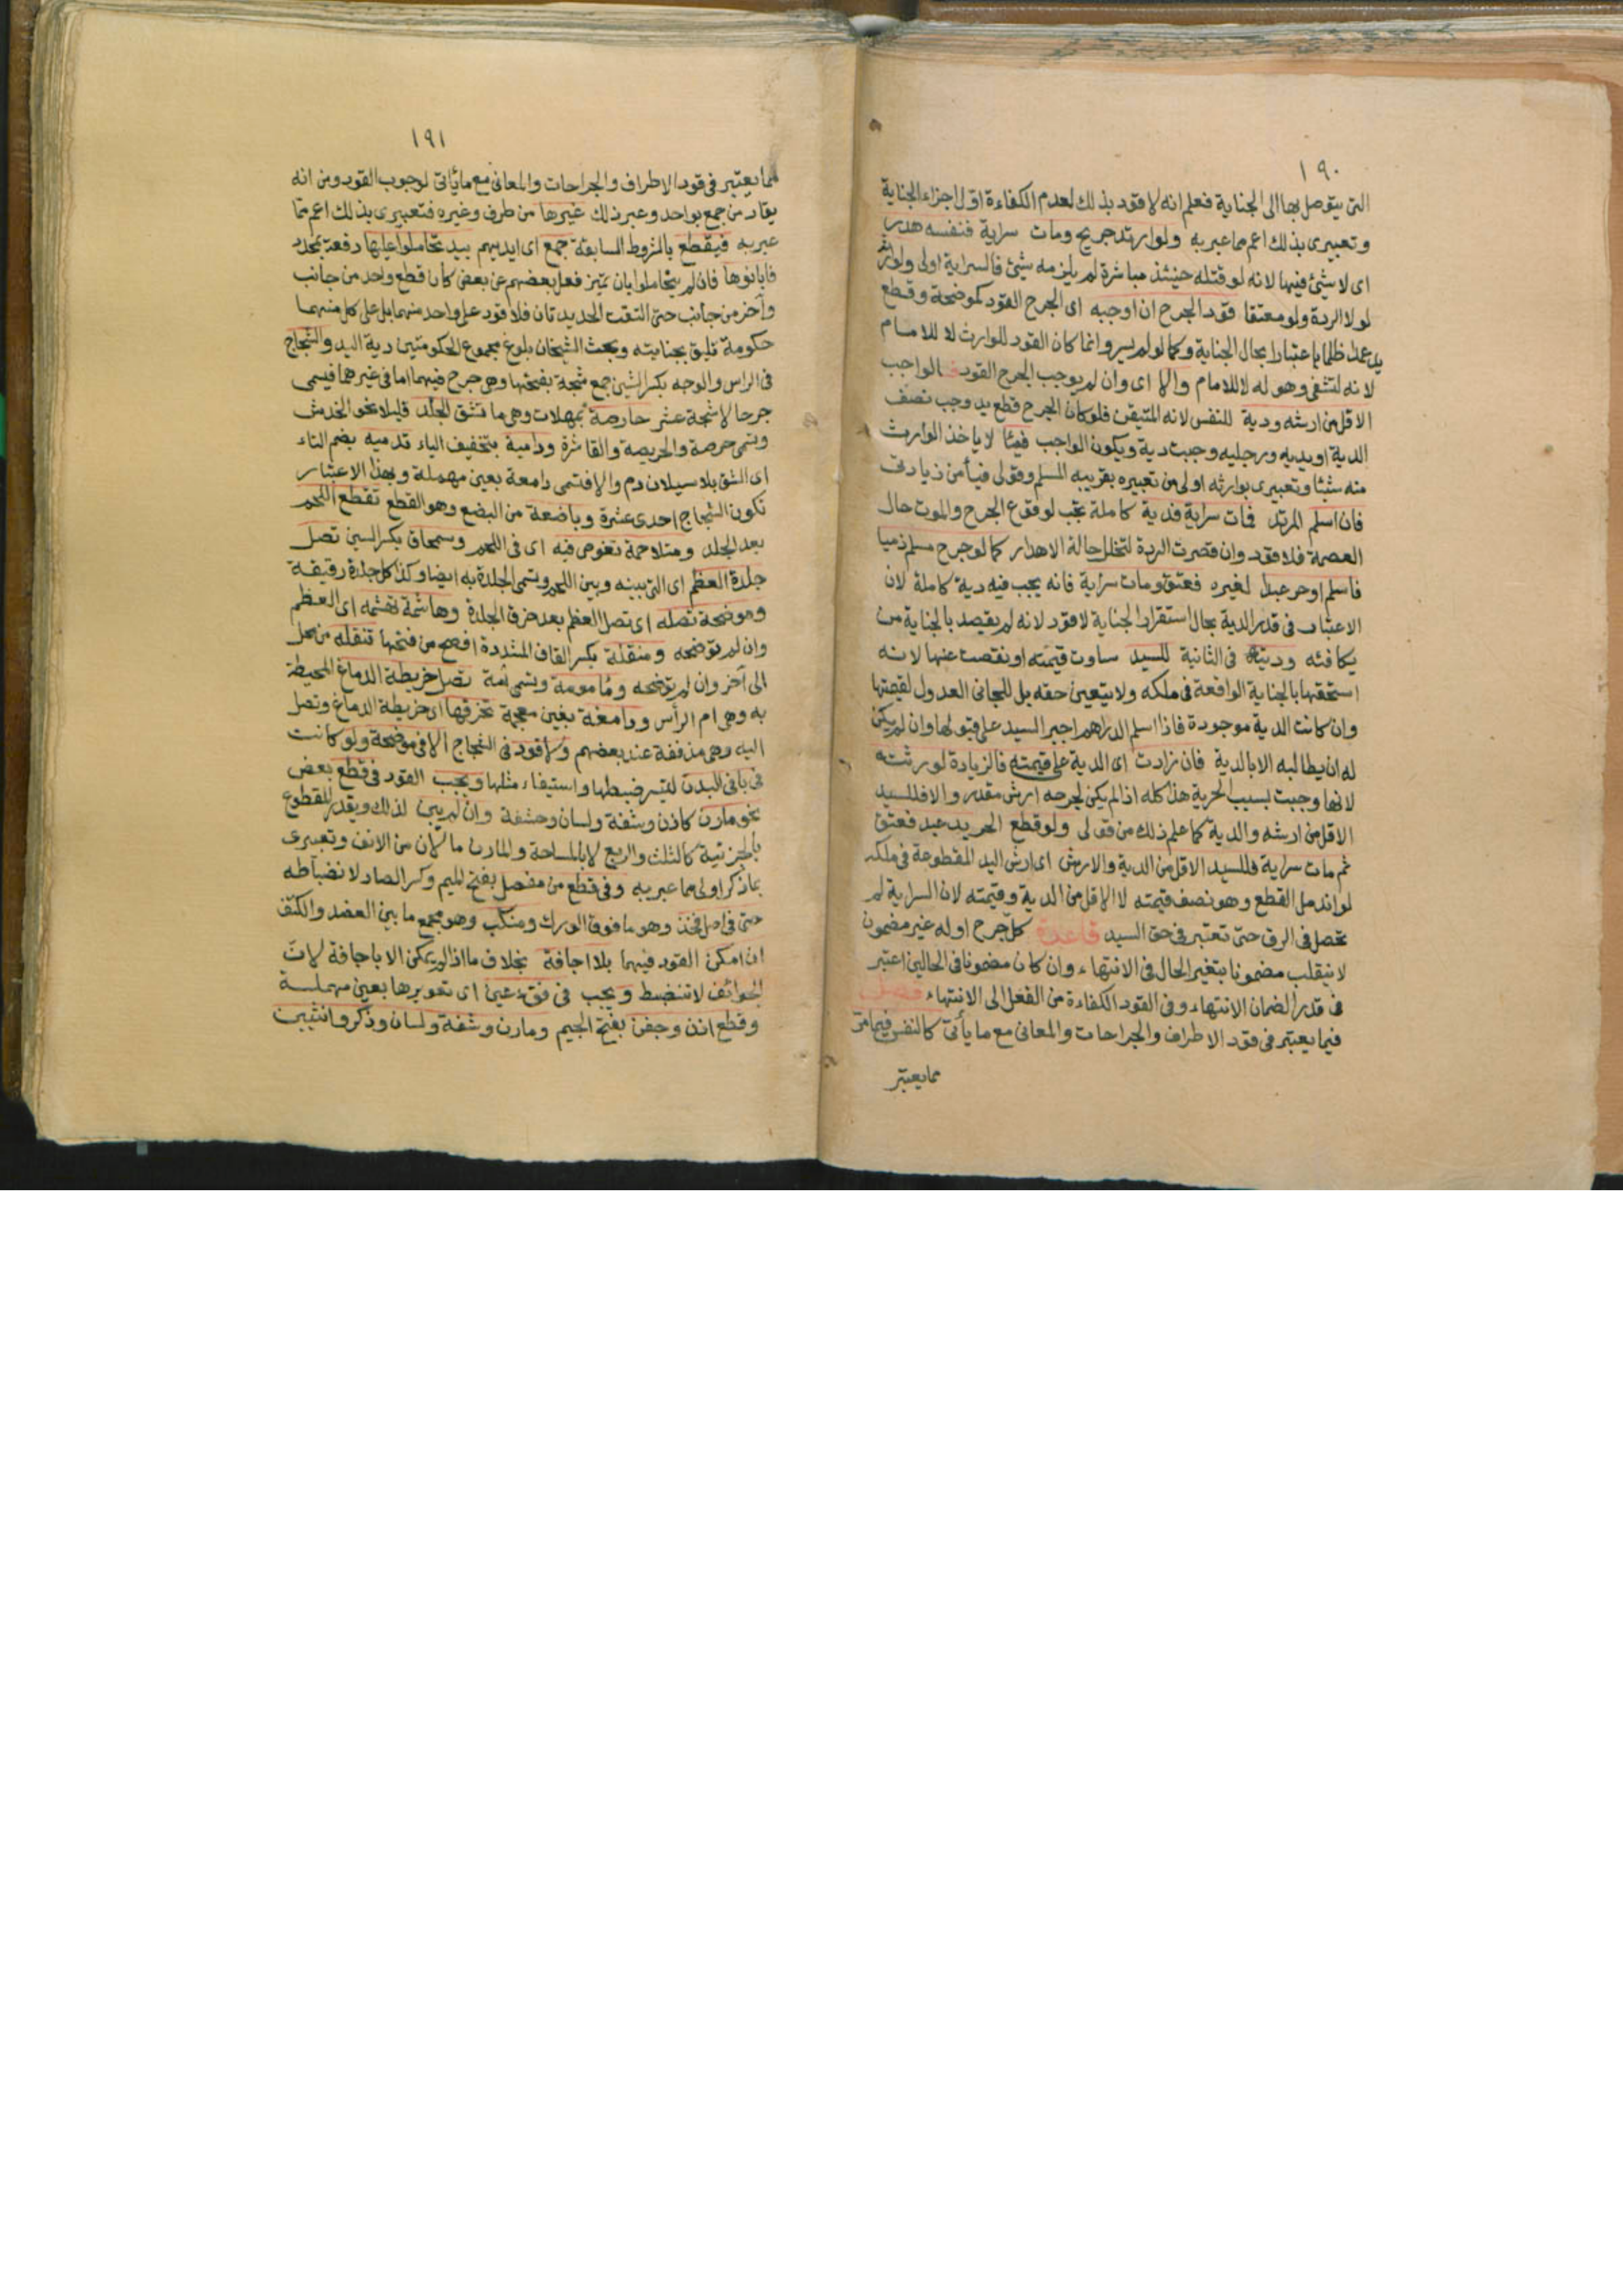 ١٩٠
التى يتوصل بها الى الجناية فعلم انه لا قود بذلك لعدم الكفاءة اول اجزاء الجناية
وتعبيرى بذلك اعم مما عبر به ولو ارتد جريح ومات سراية فنفسه هدر
اى لا شيئ فيها لانه لو قتله حينئذ مباشرة لم يلزمه شيئ فالسراية اولى ولوارثه
لولا الردة ولو معتقا قود الجرح ان اوجبه اى الجرح القود كموضحة وقطع
يد عمدا ظلما باعتبارا بحال الجناية وكما لو لم يسر وانما كان القود للوارث لا للامام
لانه لتشفى وهو له لا للامام والا اى وان لم يوجب الجرح القود فالواجب
الاقل من ارشه ودية للنفس لانه المتيقن فلو كان الجرح قطع يد وجب نصف
الدية او يديه ورجليه وجبت دية ويكون الواجب فيئا لا ياخذ الوارث
منه شيئا وتعبيرى بوارثه اولى من تعبيره بقريبه المسلم وقولى فيأ من زيادتى
فان اسلم المرتد فمات سراية فدية كاملة تجب لوقوع الجرح والموت حال
العصمة فلا قود وان قصرت الردة لتخلل حالة الاهدار كما لو جرح مسلم ذميا
فاسلم او حر عبدا لغيره فعتق ومات سراية فانه يجب فيه دية كاملة لان
الاعتبار فى قدر الدية بحال استقرار الجناية لا قود لانه لم يقصد بالجناية من
يكافئه وديته فى الثانية للسيد ساوت قيمته او نقصت عنها لانه
استحقها بالجناية الواقعة فى ملكه ولا يتعين حقه بل للجانى العدول لقيمتها
وان كانت الدية موجودة فاذا اسلم الدراهم اجبر السيد على قبولها وان لم يكن
له ان يطالبه الا بالدية فان زادت اى الدية على قيمته فالزيادة لورثته
لانها وجبت بسبب الحرية هذا كله اذا لم يكن لجرحه ارش مقدر والا فللسيد
الاقل من ارشه والدية كما علم ذلك من قولى ولو قطع الحر يد عبد فعتق
ثم مات سراية فللسيد الاقل من الدية والارش اى ارش اليد المقطوعة فى ملكه
لو اندمل القطع وهو نصف قيمته لا الاقل من الدية وقيمته لان السراية لم
تحصل فى الرق حتى تعتبر فى حق السيد قاعدة كل جرح اوله غير مضمون
لا ينقلب مضمونا بتغير الحال فى الانتهاء وان كان مضمونا فى الحالين اعتبر
فى قدر الضمان الانتهاء وفى القود الكفاءة من الفعل الى الانتهاء فصل
فيما يعتبر فى قود الاطراف والجراحات والمعانى مع ما يأتى كالنفس فيما مر
مما يعتبر
١٩١
مما يعتبر فى قود الاطراف والجراحات والمعانى مع ما يأتى لوجوب القود ومن انه
يقاد من جمع بواحد وعبر ذلك غيرها من طرف وغيره فتعبيرى بذلك اعم مما
عبر به فيقطع بالشروط السابقة جمع اى ايديهم بيد تحاملوا عليها دفعة بمحدد
فابانوها فان لم يتحاملوا بان تميز فعل بعضهم عن بعض كان قطع واحد من جانب
وآخر من جانب حتى التقت الحديدتان فلا قود على واحد منهما بل على كل منهما
حكومة تليق بجنايته وبحث الشيخان بلوغ مجموع الحكومتين دية اليد والشجاج
فى الراس والوجه بكسر الشين جمع شجة بفتحها وهى جرح فيهما اما فى غيرهما فيسمى
جرحا لا شجة عشر حارصة بمهملات وهى ما تشق الجلد قليلا نحو الخدش
وتسمى حرصة والحريصة والقاشرة ودامية بتخفيف الياء تدميه بضم التاء
اى الشق بلا سيلان دم والا فتسمى دامعة بعين مهملة وبهذا الاعتبار
تكون الشجاج احدى عشرة وباضعة من البضع وهو القطع تقطع اللحم
بعد الجلد ومتلاحمة تغوص فيه اى فى اللحم وسمحاق بكسر السين تصل
جلدة العظم اى التى بينه وبين اللحم وتسمى الجلدة به ايضا وكذا كل جلدة رقيقة
وموضحة تصله اى تصل العظم بعد خرق الجلدة وهاشمة تهشمه اى العظم
وان لم توضحه ومنقلة بكسر القاف المشددة افصح من فتحها تنقله من محل
الى آخر وان لم توضحه ومأمومة وتسمى آمة تصل خريطة الدماغ المحيطة
به وهى ام الرأس ودامغة بغين معجمة تخرقها اى خريطة الدماغ وتصل
اليه وهى مذففة عند بعضهم ولا قود فى الشجاج الا فى موضحة ولو كانت
فى باقى البدن لتيسر ضبطها واستيفاء مثلها ويجب القود فى قطع بعض
نحو مارن كاذن وشفة ولسان وحشفة وان لم يبن لذلك ويقدر المقطوع
بالجزئية كالثلث والربع لا بالمساحة والمارن ما لان من الانف وتعبيرى
بما ذكر اولى مما عبر به وفى قطع من مفصل بفتح الميم وكسر الصاد لانضباطه
حتى فى اصل فخذ وهو ما فوق الورك ومنكب وهو مجمع ما بين العضد والكتف
ان امكن القود فيهما بلا اجافة بخلاف ما اذا لم يمكن الا باجافة لان
الجوائف لا تنضبط ويجب فى فقء عين اى تعويرها بعين مهملة
وقطع اذن وجفن بفتح الجيم ومارن وشفة ولسان وذكر وانثيين